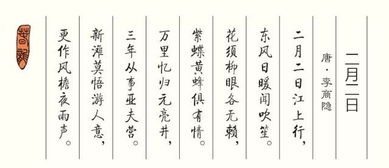 二月二日
唐·李商隐
二月二日江上行，
东风日暖闻吹笙。
花须柳眼各无赖，
紫蝶黄蜂俱有情。
万里忆归元亮井，
三年从事亚夫营。
新滩莫悟游人意，
更作风檐夜雨声。